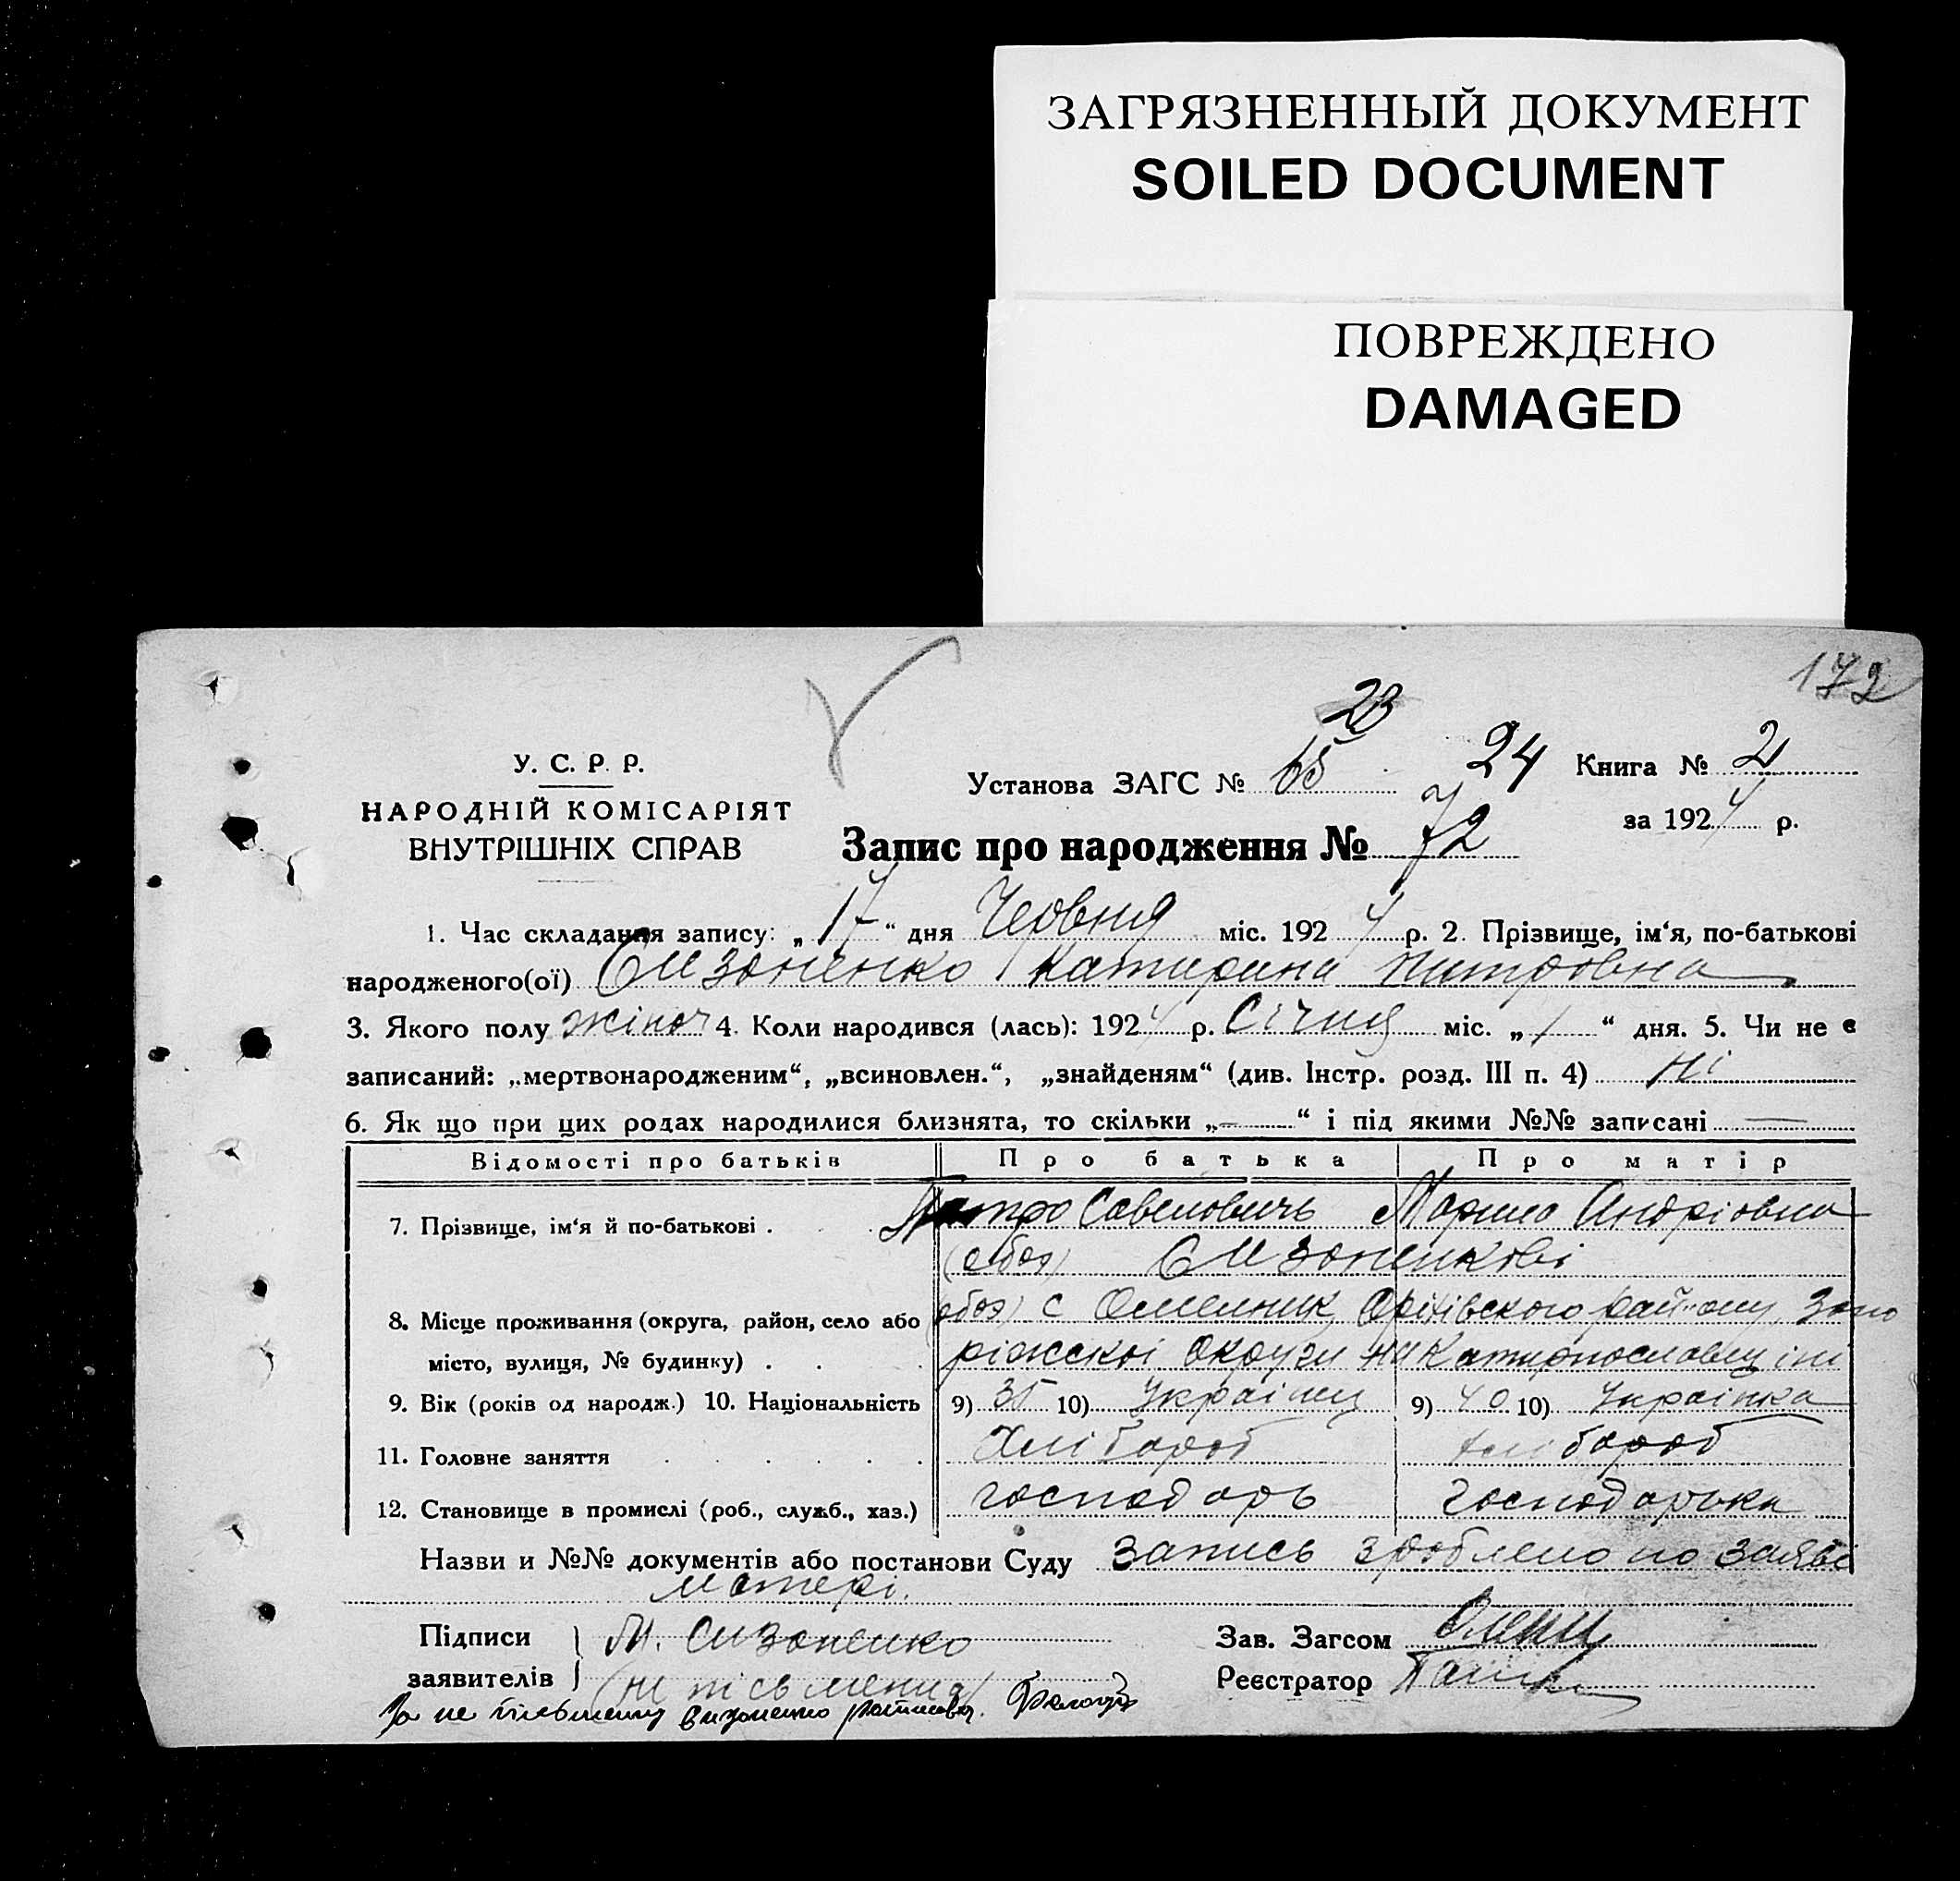 ЗАГРЯЗНЕННЫЙ ДОКУМЕНТ
SOILED DOCUMENT
ПОВРЕЖДЕНО
DAMAGED
172
У. С. Р. Р.
НАРОДНІЙ КОМІСАРІЯТ
ВНУТРІШНІХ СПРАВ
23
Установа ЗАГС № 65
24
Книга № 2
за 1924 р.
Запис про народження № 72
1. Час складання запису: „17“ дня Червня міс. 1924 р. 2. Прізвище, ім‘я, по-батькові
народженого(ої) Сизоненко Катирина Питровна
3. Якого полу жіноч 4. Коли народився (лась): 1924 р. Січня міс. „1“ дня. 5. Чи не є
записаний: „мертвонародженим“, „всиновлен.“, „знайденям“ (див. Інстр. розд. III п. 4) ні
6. Як що при цих родах народилися близнята, то скільки „—“ і під якими №№ записані —
Відомості про батьків Про батька Про матір
7. Прізвище, ім‘я й по-батькові . Петро Савелович Марина Андріовна
(обоє) Сизоненкові
8. Місце проживання (округа, район, село або (обоє) с Омелник Оріхівского району, Запо
місто, вулиця, № будинку) . . . ріжскої округи на Катиринославщіні
9. Вік (років од народж.) 10. Національність 9) 35 10) Украінец 9) 40 10) Украінка
11. Головне заняття . . . . . . Хлібороб хлібороб
12. Становище в промислі (роб., служб., хаз.) господарь господарька
Назви и №№ документів або постанови Суду Запись зроблено по заяві
матері.
Підписи М. Сизоненко Зав. Загсом
заявителів (ни письменна) Реєстратор
За не письменну Сизоненко